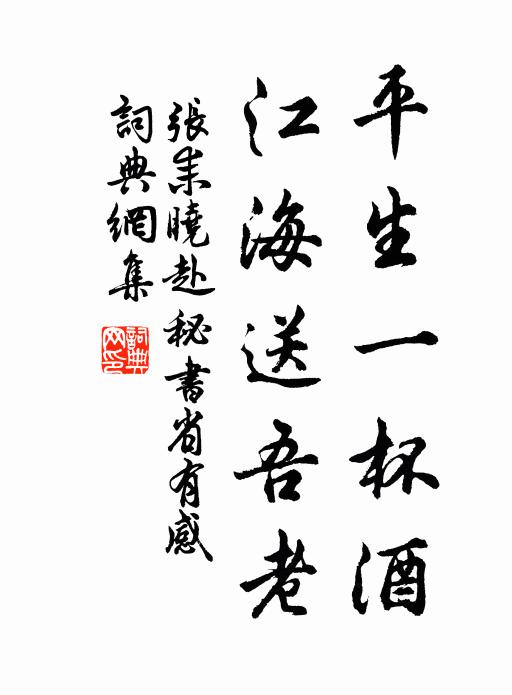 平生一杯酒
江海送吾老
張耒曉赴秘書省有感
詞典網集
詞典网印